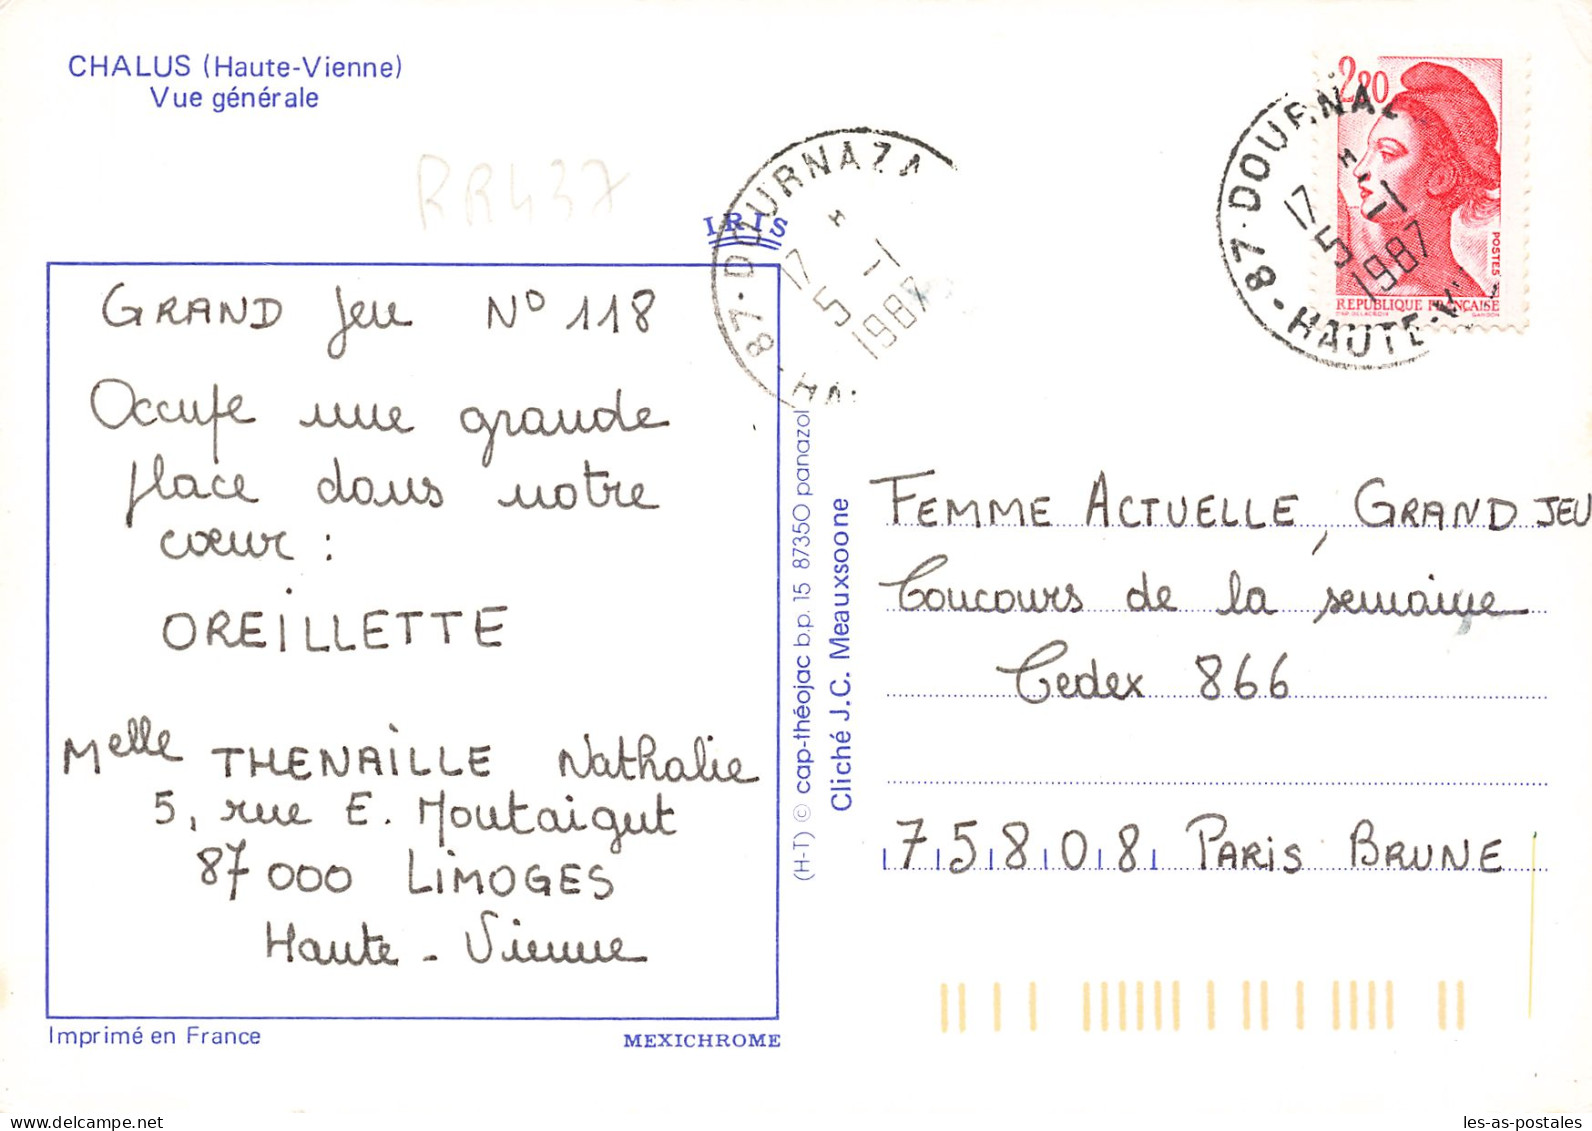 CHALUS (Haute-Vienne)
Vue générale
RR437
IRIS
GRAND Jeu N° 118
Occupe une grande
place dans notre
cœur :
OREILLETTE
Melle THENAILLE Nathalie
5, rue E. Montaigut
87 000 LIMOGES
Haute - Vienne
Imprimé en France
MEXICHROME
87 - DOURNAZA
17
5
1987
HA
(H-T) © cap-théojac b.p. 15 87350 panazol
Cliché J.C. Meauxsoone
2,20
POSTES
REPUBLIQUE FRANÇAISE
D'AP. DELACROIX GANDON
87 - DOURNA
17
5
1987
HAUTE-
FEMME ACTUELLE, GRAND JEU
Concours de la semaine
Cedex 866
75808 PARIS BRUNE
les-as-postales
delcampe.net